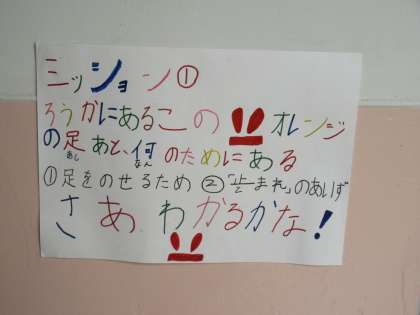 ミッション①
ろうかにあるこの オレンジ
の足あと、何のためにある
①足をのせるため ②「止まれ」のあいず
さあ わかるかな!